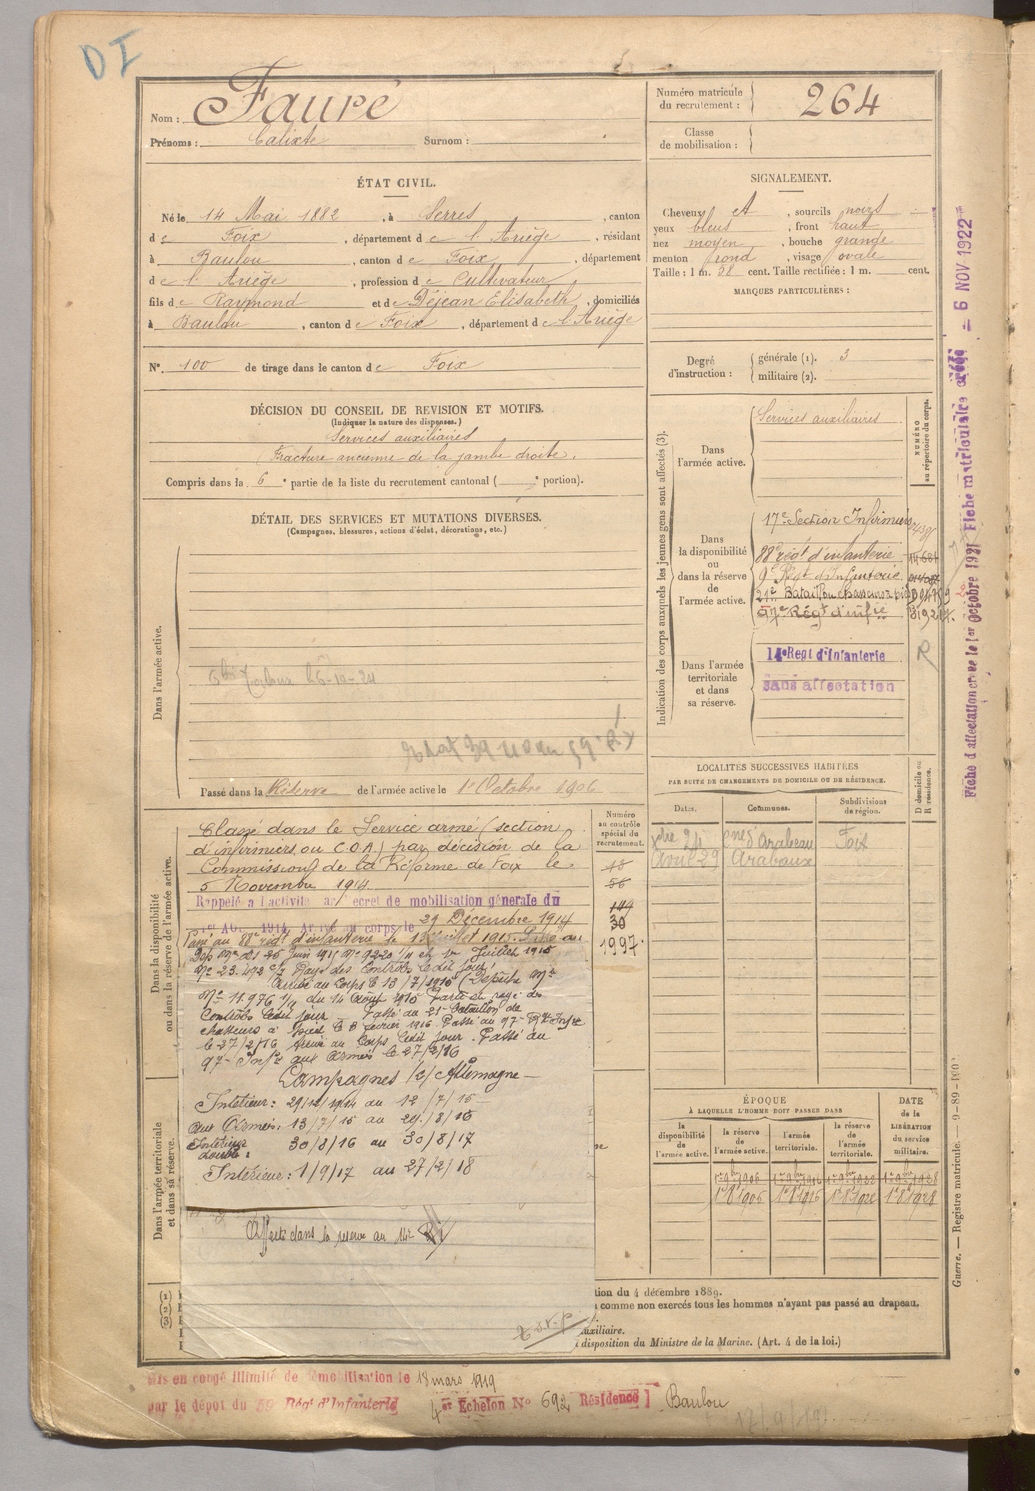 DI
Nom : Fauré
Prénoms : Calixte Surnom :
Numéro matricule du recrutement : 264
Classe de mobilisation :
ÉTAT CIVIL.
Né le 14 Mai 1882, à Serres, canton
de Foix, département de l'Ariège, résidant
à Baulou, canton de Foix, département
de l'Ariège, profession de Cultivateur
fils de Raymond et de Déjean Elisabeth, domiciliés
à Baulou, canton de Foix, département de l'Ariège
N°. 100 de tirage dans le canton de Foix
SIGNALEMENT.
Cheveux et, sourcils noirs
yeux bleus, front haut
nez moyen, bouche grande
menton rond, visage ovale
Taille : 1 m. 58 cent. Taille rectifiée : 1 m. cent.
MARQUES PARTICULIÈRES :
Degré d'instruction : générale (1). 3
militaire (2).
DÉCISION DU CONSEIL DE REVISION ET MOTIFS.
(Indiquer la nature des dispenses.)
Services auxiliaires
Fracture ancienne de la jambe droite.
Compris dans la 6e partie de la liste du recrutement cantonal ( e portion).
DÉTAIL DES SERVICES ET MUTATIONS DIVERSES.
(Campagnes, blessures, actions d'éclat, décorations, etc.)
Dans l'armée active.
Passé dans la Réserve de l'armée active le 1er Octobre 1906
Indication des corps auxquels les jeunes gens sont affectés (3).
NUMÉRO au répertoire du corps.
Dans l'armée active.
Services auxiliaires
Dans la disponibilité ou dans la réserve de l'armée active.
17e Section Infirmiers
88e régt d'infanterie
9e Régt d'Infanterie
21e Bataillon chasseurs à pied
97e Régt d'infie
Dans l'armée territoriale et dans sa réserve.
14e Regt d'Infanterie
sans affectation
R
Fiche d'affectation créée le 1er octobre 1921 Fiche matriculaire créée – 6 NOV 1922
LOCALITÉS SUCCESSIVES HABITÉES
PAR SUITE DE CHANGEMENTS DE DOMICILE OU DE RÉSIDENCE.
Dates. Communes. Subdivisions de région. D domicile ou R résidence.
Arabaux Foix
Avril 29 Arabaux
Dans la disponibilité ou dans la réserve de l'armée active.
Numéro au contrôle spécial du recrutement.
30
1997
Classé dans le Service armé (section
d'infirmiers ou C.O.A.) par décision de la
Commission de la Réforme de Foix le
5 Novembre 1914.
Rappelé à l'activité décret de mobilisation générale du
1er Août 1914. Arrivé au corps le 29 Décembre 1914
Passé au 88e régt d'infanterie le
Juillet 1915
Arrivé au Corps le 13/7/1915 (Dépêche Mle
Nº 11.976 1/11 du 14 Août 1915 Parti et rayé des
Contrôles ledit jour Passé au 21e Bataillon de
chasseurs à pied le 8 février 1916 Passé au 97e Rgt Infie
le 27/2/16 Arrivé au Corps ledit jour. Passé au
97e aux Armées le 27/2/16
Campagnes c/ Allemagne
Intérieur : 29/12/1914 au 12/7/15
aux Armées : 13/7/15 au 29/8/16
Intérieur double : 30/8/16 au 30/8/17
Intérieur : 1/9/17 au 27/2/18
Dans l'armée territoriale et dans sa réserve.
Affecté dans la réserve au 14e RI
T.S.V.P.
ÉPOQUE
À LAQUELLE L'HOMME DOIT PASSER DANS
la disponibilité de l'armée active. la réserve de l'armée active. l'armée territoriale. la réserve de l'armée territoriale.
DATE de la LIBÉRATION du service militaire.
1er 8bre 1906 1er 8 1916 1er 8 1922 1er 8 1928
(1)
(2)
(3)
tion du 4 décembre 1889.
comme non exercés tous les hommes n'ayant pas passé au drapeau.
uxiliaire.
disposition du Ministre de la Marine. (Art. 4 de la loi.)
Guerre. — Registre matricule. — 9-89-
Mis en congé illimité de démobilisation le 18 mars 1919
par le dépôt du 59 Régt d'Infanterie 4er Echelon N° 692 Résidence Baulou